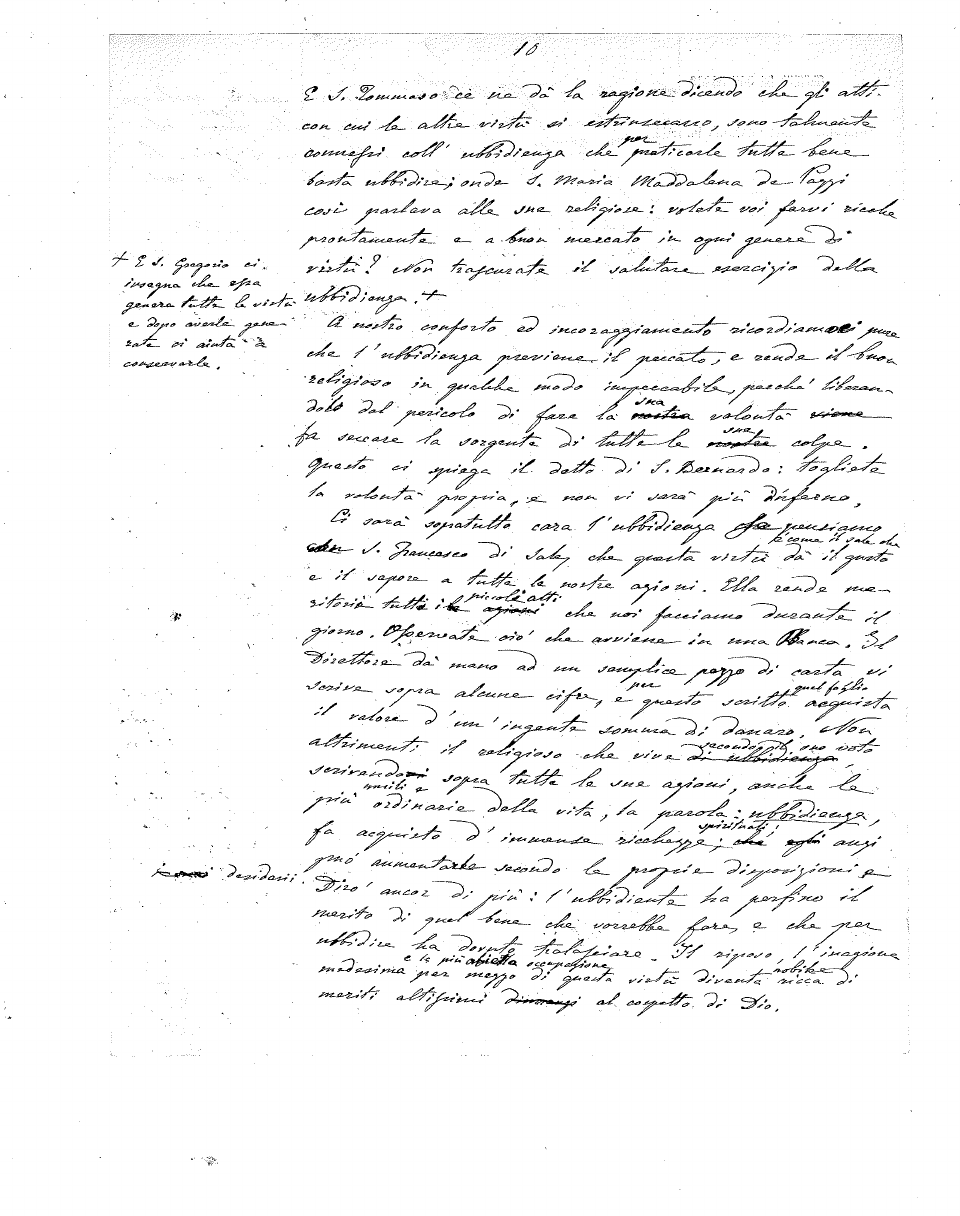 10
E S. Tommaso ce ne dà la ragione dicendo che gli atti
con cui le altre virtù si estrinsecano, sono talmente
connessi coll' ubbidienza che per praticarle tutte bene
basta ubbidire; onde S. Maria Maddalena de Pazzi
così parlava alle sue religiose: volete voi farvi ricche
prontamente e a buon mercato in ogni genere di
virtù? Non trascurate il salutare esercizio della
ubbidienza. +
+ E S. Gregorio ci
insegna che essa
genera tutte le virtù
e dopo averle gene-
rate ci aiuta a
conservarle.
A nostro conforto ed incoraggiamento ricordiamoci pure
che l'ubbidienza previene il peccato, e rende il buon
religioso in qualche modo impeccabile, perché liberan-
dolo dal pericolo di fare la nostra sua volontà viene
fa seccare la sorgente di tutte le nostre sue colpe.
Questo ci spiega il detto di S. Bernardo: togliete
la volontà propria, e non vi sarà più inferno.
Ci sarà sopratutto cara l'ubbidienza se pensiamo
con S. Francesco di Sales, che questa virtù è come il sale che dà il gusto
e il sapore a tutte le nostre azioni. Ella rende me-
ritorii tutti i le azioni piccoli atti che noi facciamo durante il
giorno. Osservate ciò che avviene in una Banca. Il
Direttore dà mano ad un semplice pezzo di carta vi
scrive sopra alcune cifre, e per questo scritto quel foglio acquista
il valore d'un' ingente somma di danaro. Non
altrimenti il religioso che vive di ubbidienza secondo il suo voto,
scrivendo sopra tutte le sue azioni, anche le
più umili e ordinarie della vita, la parola: ubbidienza,
fa acquisto d'immense ricchezze spirituali; che egli anzi
può aumentarle secondo le proprie disposizioni e
desiderii.
Dirò ancor di più: l'ubbidiente ha perfino il
merito di quel bene che vorrebbe fare, e che per
ubbidire ha dovuto tralasciare. Il riposo, l'inazione
medesima e la più abietta occupazione per mezzo di questa virtù diventa nobile ricca di
meriti altissimi dinnanzi al cospetto di Dio.